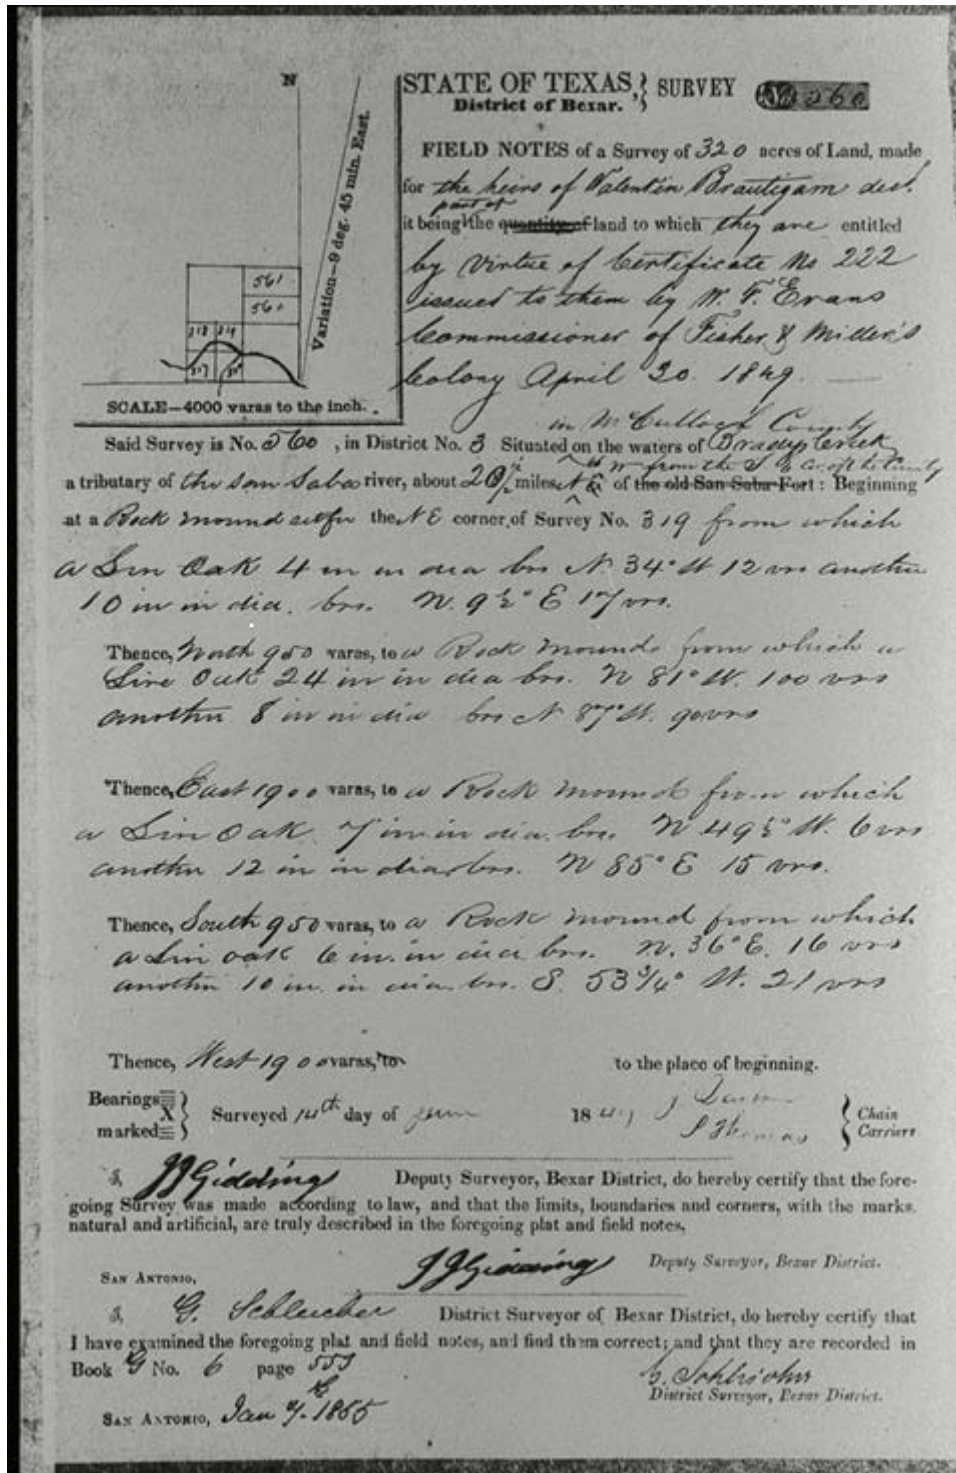 N
Variation—9 deg. 45 min. East.
561
560
318 319
317
SCALE—4000 varas to the inch.
STATE OF TEXAS, } SURVEY No 560
District of Bexar.
FIELD NOTES of a Survey of 320 acres of Land, made
for the heirs of Valentin Brautigam decd.
part of
it being the quantity of land to which they are entitled
by virtue of Certificate No 222
issued to them by W. F. Evans
Commissioner of Fisher & Miller's
Colony April 20. 1849.
in McCulloch County
Said Survey is No. 560, in District No. 3 Situated on the waters of Bradys Creek
W from the S E Cor of the County
a tributary of the San Saba river, about 20½ miles N of the old San Saba Fort: Beginning
at a Rock mound set for the N E corner of Survey No. 319 from which
a Live Oak 4 in in dia brs N 34° W 12 vrs another
10 in in dia. brs. N. 9½° E 17 vrs.
Thence, North 950 varas, to a Rock mound from which a
Live Oak 24 in in dia brs. N 81° W. 100 vrs
another 8 in in dia brs N 87° W. 90 vrs
Thence, East 1900 varas, to a Rock mound from which
a Live Oak 7 in in dia. brs. N 49½° W. 6 vrs
another 12 in in dia brs. N 85° E 15 vrs.
Thence, South 950 varas, to a Rock mound from which
a Live oak 6 in. in dia brs. N. 36° E. 16 vrs
another 10 in. in dia. brs. S. 53¾° W. 21 vrs
Thence, West 1900 varas, to to the place of beginning.
Bearings X marked } Surveyed 14th day of June 1849 J
S Thomas } Chain Carriers
I, J J Giddings Deputy Surveyor, Bexar District, do hereby certify that the fore-
going Survey was made according to law, and that the limits, boundaries and corners, with the marks,
natural and artificial, are truly described in the foregoing plat and field notes,
J J Giddings Deputy Surveyor, Bexar District.
SAN ANTONIO,
I, G. Schleicher District Surveyor of Bexar District, do hereby certify that
I have examined the foregoing plat and field notes, and find them correct; and that they are recorded in
Book G No. 6 page 553
G. Schleicher
District Surveyor, Bexar District.
SAN ANTONIO, Jan 1855